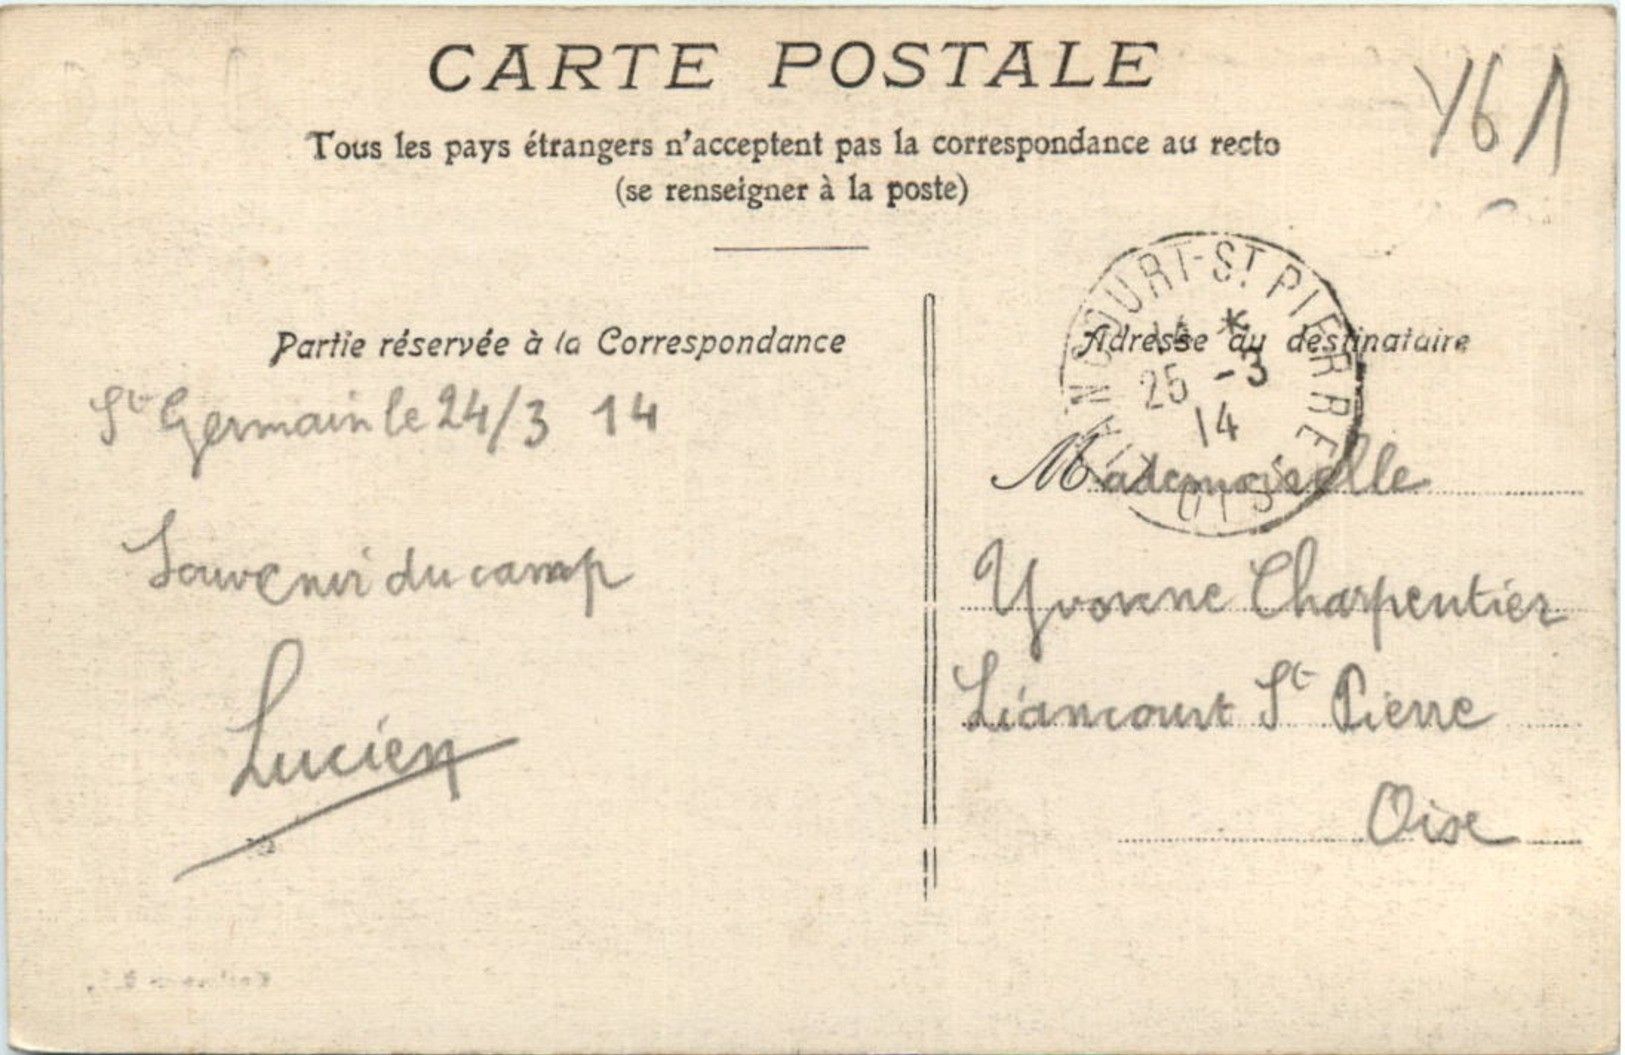 CARTE POSTALE
Tous les pays étrangers n'acceptent pas la correspondance au recto
(se renseigner à la poste)
Y61
Partie réservée à la Correspondance
St Germain le 24/3 14
Souvenir du camp
Lucien
Adresse du destinataire
LIANCOURT-ST PIERRE
*
25 -3
14
OISE
Mademoiselle
Yvonne Charpentier
Liancourt St Pierre
Oise